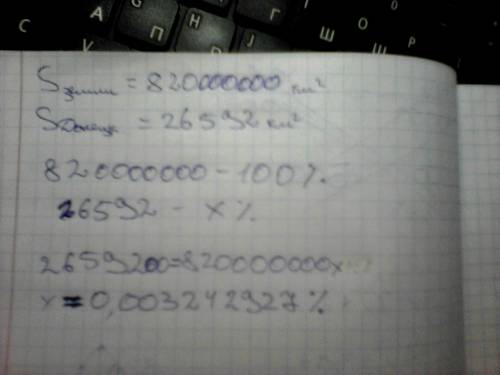 S земли = 820000000 км²
S Донецка = 26592 км²
820000000 - 100%
26592 - x%
2659200=820000000x
x=0,003242927%
С А П Н Г Ш О Щ Р К J